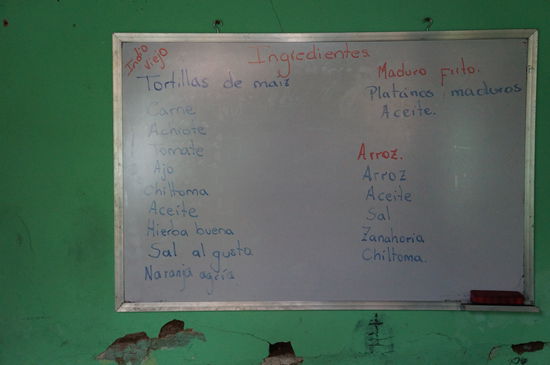 Indio
viejo
Ingredientes
Tortillas de maíz
Carne
Achiote
Tomate
Ajo
Chiltoma
Aceite
Hierba buena
Sal al gusto
Naranja agria
Maduro frito.
Platános maduros
Aceite.
Arroz.
Arroz
Aceite
Sal
Zanahoria
Chiltoma.